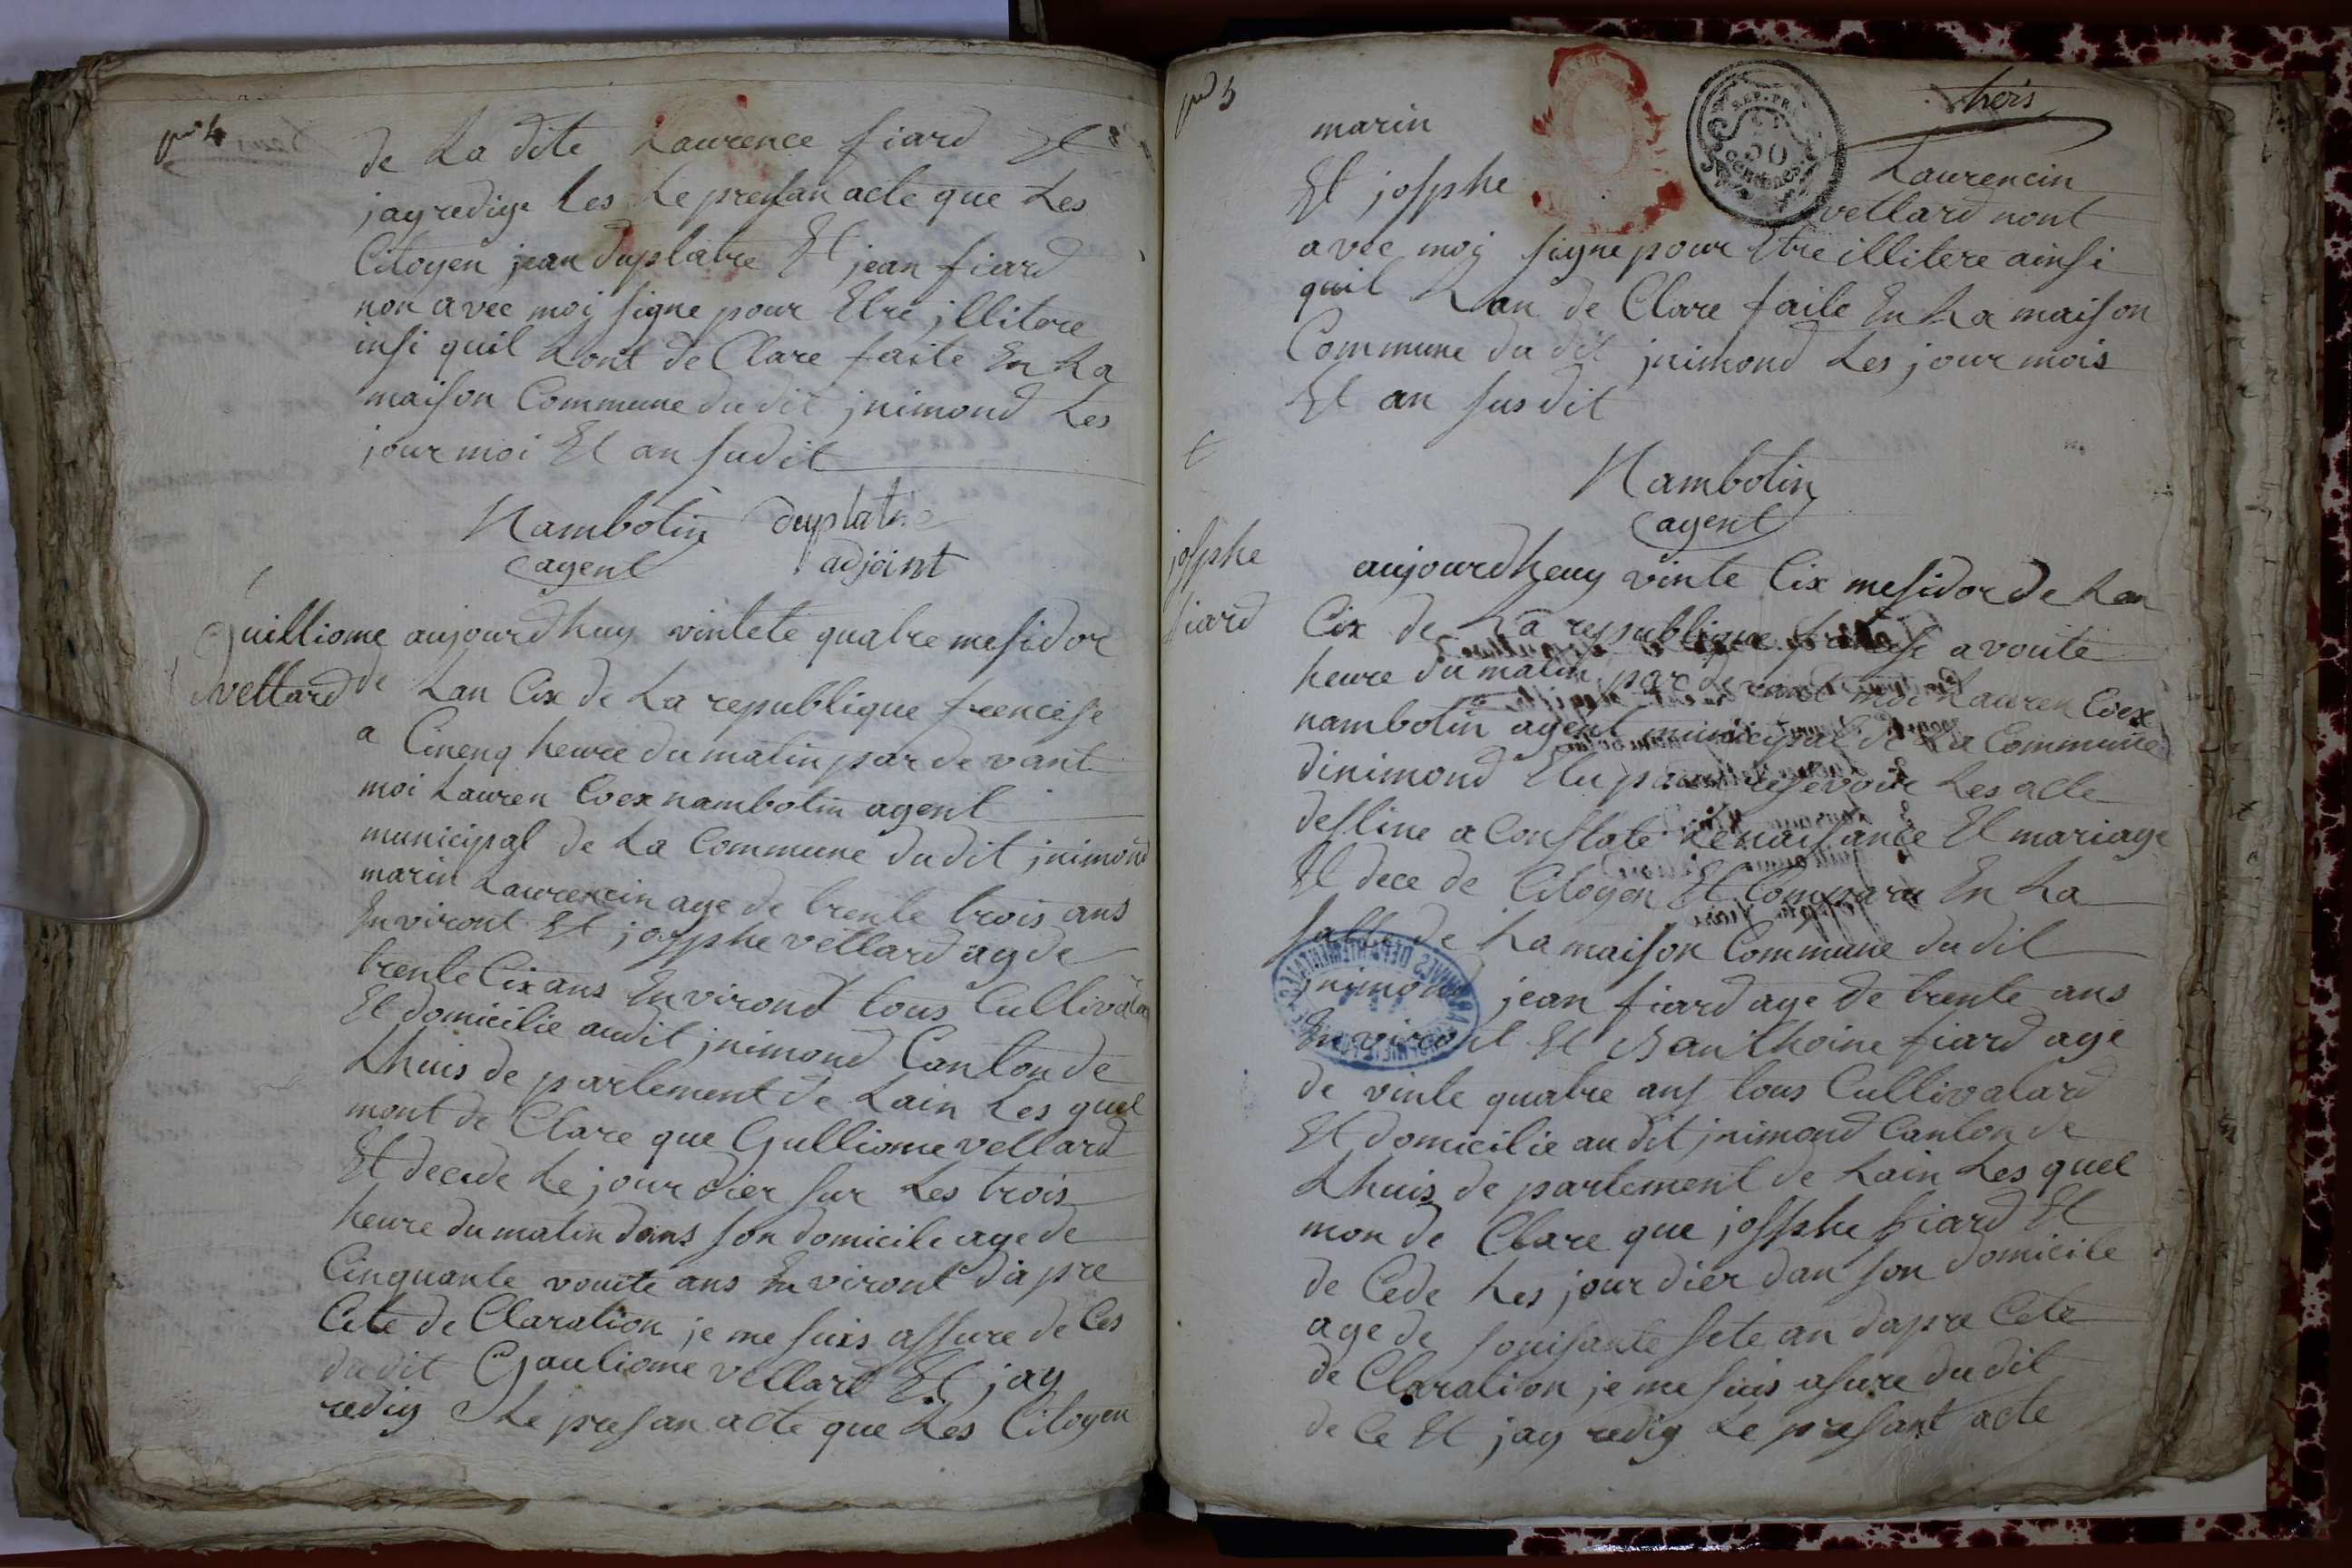 de La dite Laurence fiard Et
jay redige Les Le presan acte que Les
Citoyen jean duplatre Et jean fiard
non avec moy signe pour Etre jllitere
insi quil Lont de Clare faite En La
maison Commune du dit jnimond Les
jour moi Et an sudit
Nambotin duplatre
agent adjoint
Guilliome aujourdhuy vintete quatre mesidor
vettard de Lan Cix de La republique frencese
a Cinenq heure du matin par de vant
moi Lauren Coex nambotin agent
municipal de La Commune du dit jnimond
marin Laurencin age de trente trois ans
Environt Et josphe vettard ag de
trente Cix ans Environd tous Cullivater
Et domicilie audit jnimond Canton de
Lhuis de partement de Lain Les quel
mont de Clare que Gulliome vettard
Et decede Le jour dier sur Les trois
heure du matin dans son domicile age de
Cinquante vouite ans En viront dapre
Cete de Claration je me suis assure de Ces
du dit Gauliome vettard Et jay
redig Le presan acte que Les Citoyen
trois
marin Laurencin
Et josphe vettard nont
avec moy signe pour Etre illitere ainsi
quil Lan de Clare faite En La maison
Commune du dit jnimond Les jour mois
Et an susdit
Nambotin
agent
josphe
fiard
aujourdheuy vinte Cix mesidor de Lan
Cix de La republique franse a vouite
heure du matin par de vant moi Lauren Coex
nambotin agent municipal de La Commune
dinimond Elu pour resevoir Les acte
destine a Constate Lenaisance Et mariage
Et dece de Citoyen Et Comparu En La
salle de La maison Commune du dit
jnimond jean fiard age de trente ans
En viront Et anthoine fiard age
de vinte quatre ans tous Cullivatard
Et domicilie au dit jnimond Canton de
Lhuis de partement de Lain Les quel
mon de Clare que josphe fiard Et
de Cede Les jour dier dan son domicile
age de souisante sete an dapre Cete
de Claration je me suis asure du dit
de Ce Et jay redig Le presant acte